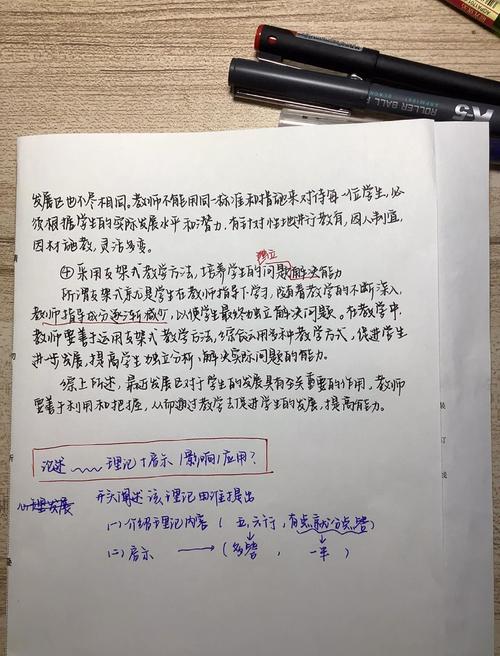 发展区也不尽相同。教师不能用同一标准和措施来对待每一位学生,必
须根据学生的实际发展水平和潜力,有针对性地进行教育,因人制宜,
因材施教,灵活多变。
独立
④采用支架式教学方法,培养学生的问题解决能力
所谓支架式就是学生在教师指导下学习,随着教学的不断深入,
教师指导成分逐渐减少,以便学生最终独立解决问题。在教学中,
教师要善于运用支架式教学方法,综合运用多种教学方式,促进学生
进步发展,提高学生独立分析、解决实际问题的能力。
综上所述,最近发展区对于学生的发展具有至关重要的作用,教师
要善于利用和把握,从而通过教学去促进学生的发展,提高能力。
论述 理论+启示/影响/应用?
心理发展 开头阐述该理论由谁提出
(一)介绍理论内容(五、六行,有点就分点答)
(二)启示 → (多答, 一半)
装订线
ROLLER BALL